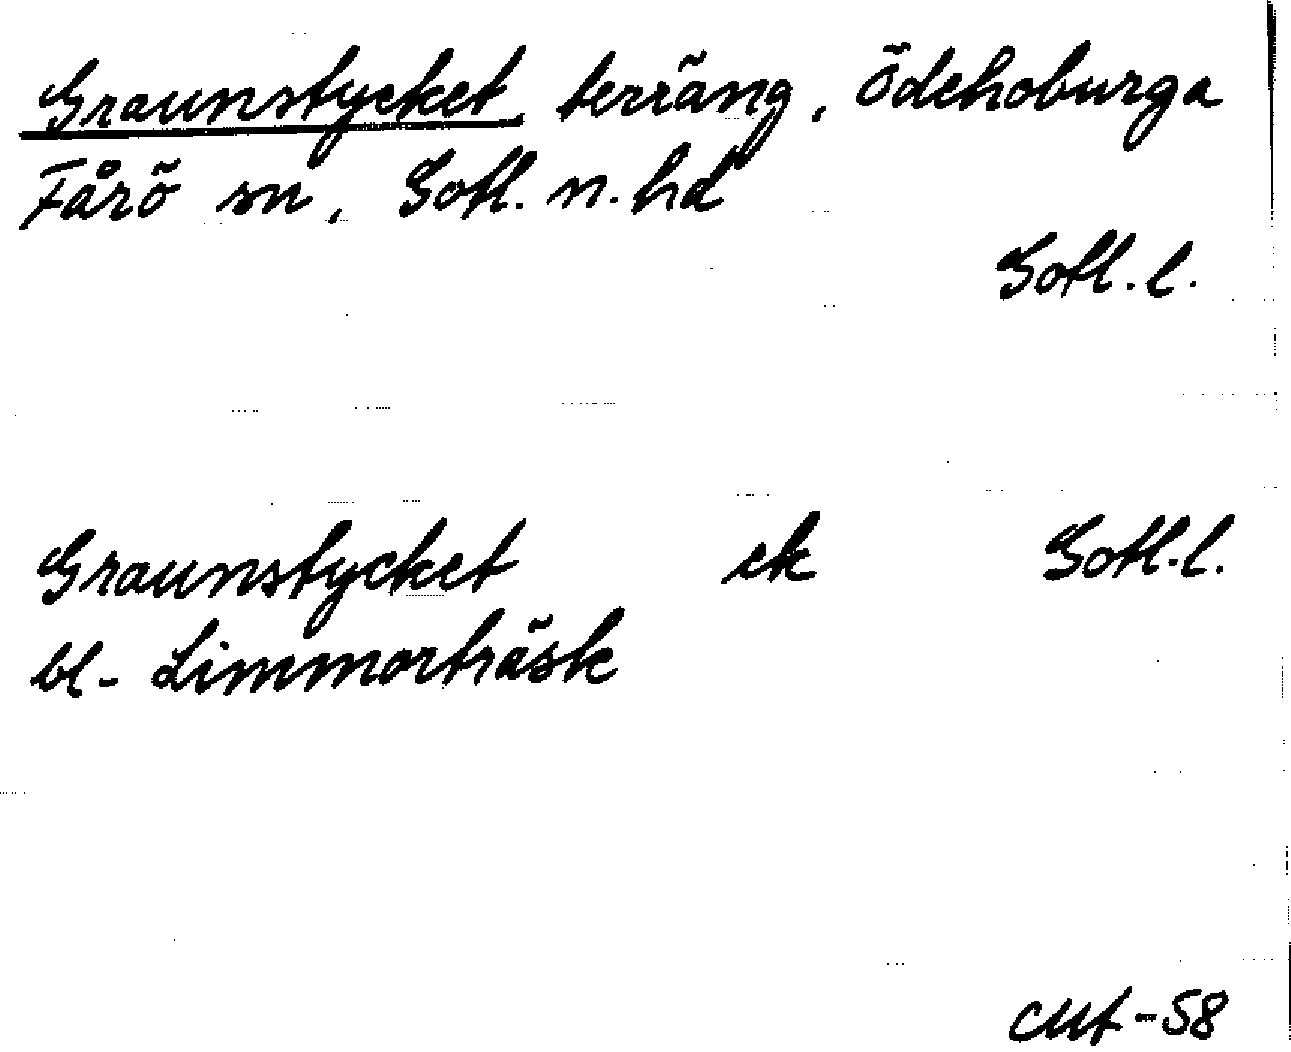 Graunstycket, terräng, Ödehoburga
Fårö sn, Gotl. n. hd
Gotl. l.
Graunstycket ek Gotl. l.
bl. Limmorträsk
CMf-58